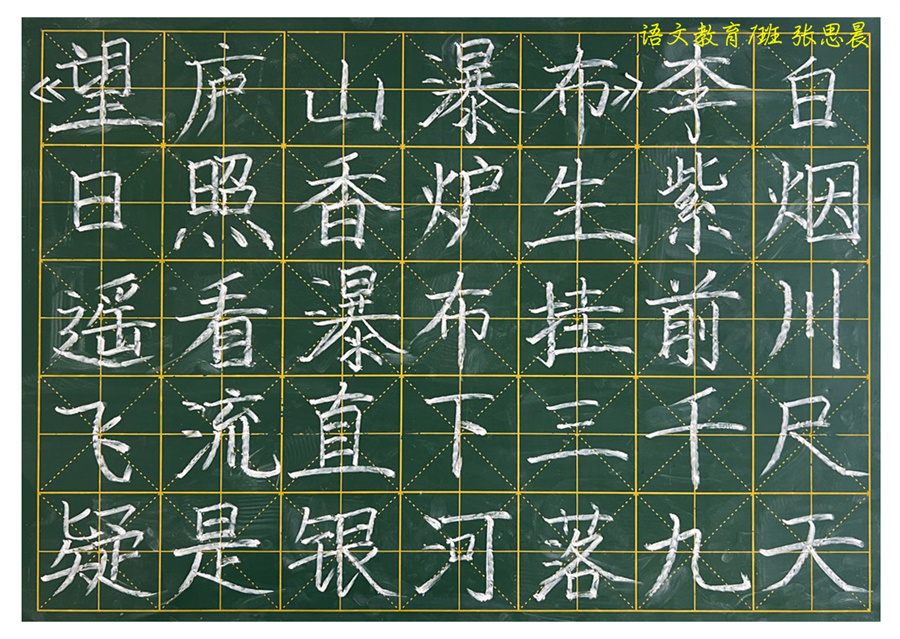 语文教育1班 张思晨
《望庐山瀑布》李白
日照香炉生紫烟
遥看瀑布挂前川
飞流直下三千尺
疑是银河落九天